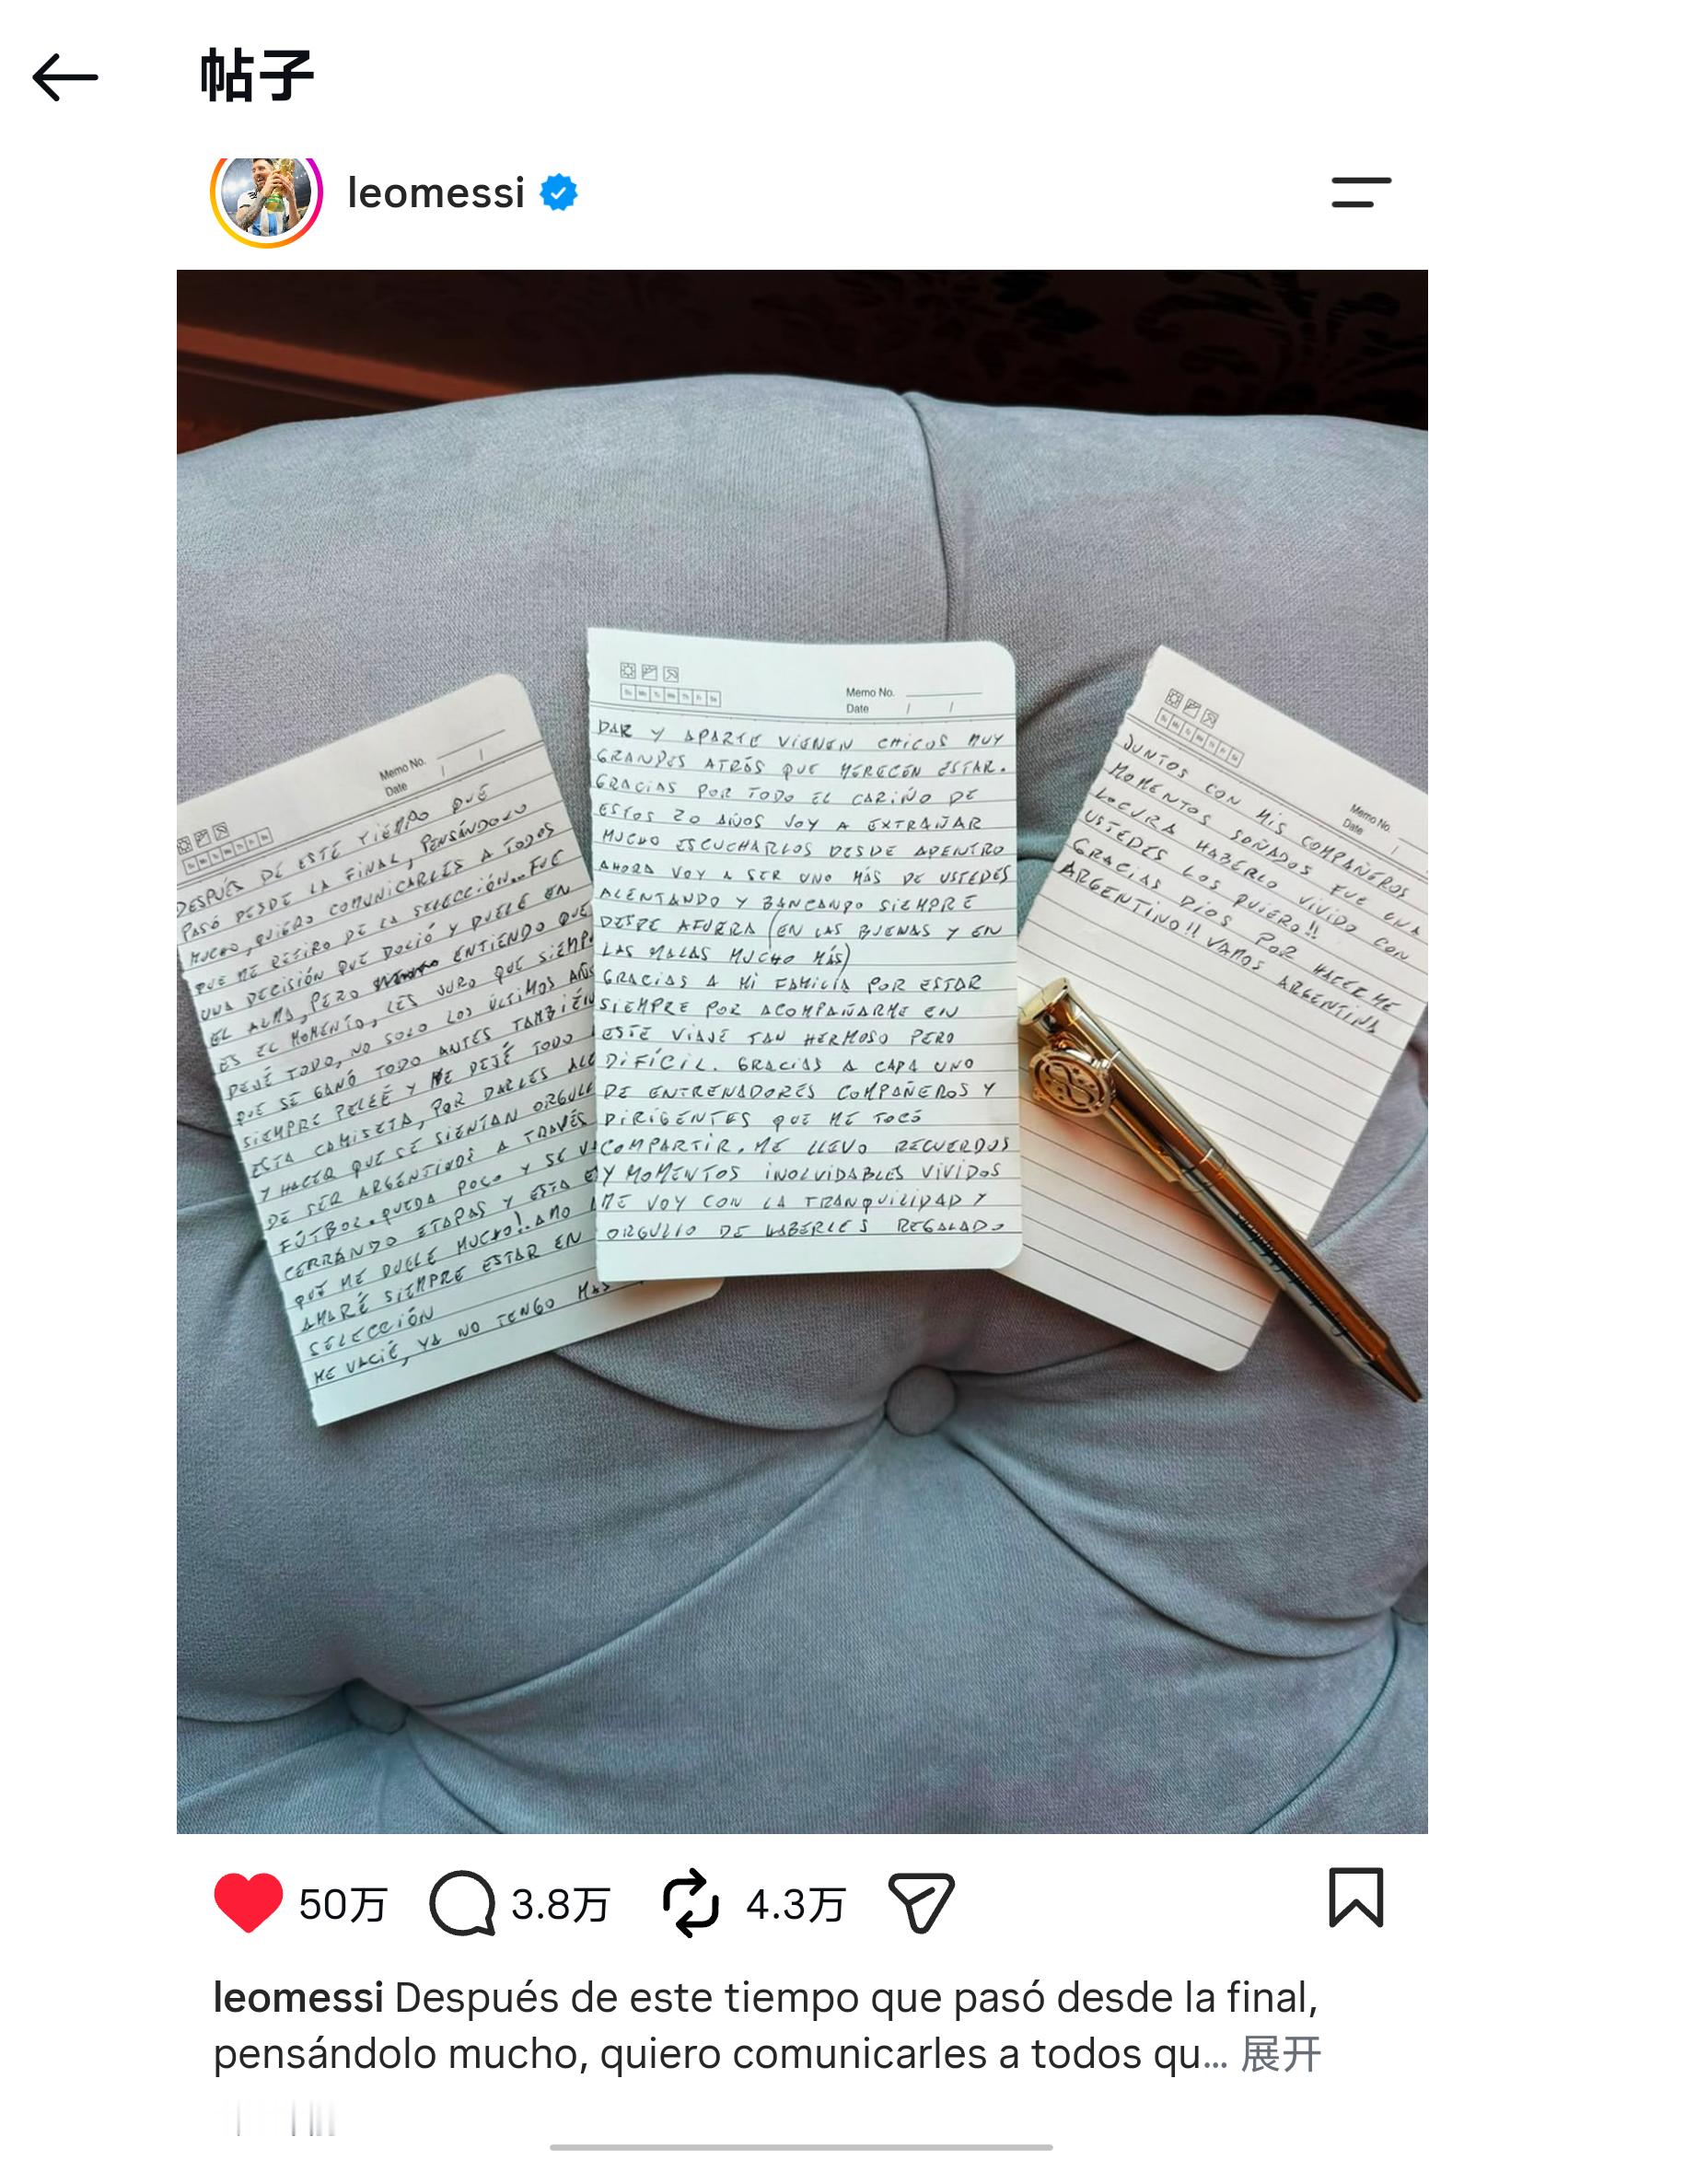 帖子
leomessi
Memo No.
Date / /
DESPUÉS DE ESTE TIEMPO QUE
PASÓ DESDE LA FINAL, PENSÁNDOLO
MUCHO, QUIERO COMUNICARLES A TODOS
QUE ME RETIRO DE LA SELECCIÓN... FUE
UNA DECISIÓN QUE DOLIÓ Y DUELE EN
EL ALMA, PERO ENTIENDO QUE
ES EL MOMENTO, LES JURO QUE SIEMP
DEJÉ TODO, NO SOLO LOS ÚLTIMOS AÑOS
QUE SE GANÓ TODO ANTES TAMBIÉN
SIEMPRE PELEÉ Y ME DEJÉ TODO
ESTA CAMISETA, POR DARLES ALE
Y HACER QUE SE SIENTAN ORGULL
DE SER ARGENTINOS A TRAVÉS
FÚTBOL. QUEDA POCO Y SE V
CERRANDO ETAPAS Y ESTA E
QUE ME DUELE MUCHO!. AMO
AMARÉ SIEMPRE ESTAR EN
SELECCIÓN
ME VACIÉ, YA NO TENGO MAS
Memo No.
Date / /
DAR Y APARTE VIENEN CHICOS MUY
GRANDES ATRÁS QUE MERECEN ESTAR.
GRACIAS POR TODO EL CARIÑO DE
ESTOS 20 AÑOS VOY A EXTRAÑAR
MUCHO ESCUCHARLOS DESDE ADENTRO
AHORA VOY A SER UNO MÁS DE USTEDES
ALENTANDO Y BANCANDO SIEMPRE
DESDE AFUERA (EN LAS BUENAS Y EN
LAS MALAS MUCHO MÁS)
GRACIAS A MI FAMILIA POR ESTAR
SIEMPRE POR ACOMPAÑARME EN
ESTE VIAJE TAN HERMOSO PERO
DIFÍCIL. GRACIAS A CADA UNO
DE ENTRENADORES COMPAÑEROS Y
DIRIGENTES QUE ME TOCÓ
COMPARTIR. ME LLEVO RECUERDOS
Y MOMENTOS INOLVIDABLES VIVIDOS
ME VOY CON LA TRANQUILIDAD Y
ORGULLO DE HABERLES REGALADO
Memo No.
Date /
JUNTOS CON MIS COMPAÑEROS
MOMENTOS SOÑADOS FUE UNA
LOCURA HABERLO VIVIDO CON
USTEDES LOS QUIERO!!
GRACIAS DIOS POR HACERME
ARGENTINO!! VAMOS ARGENTINA
50万 3.8万 4.3万
leomessi Después de este tiempo que pasó desde la final,
pensándolo mucho, quiero comunicarles a todos qu... 展开